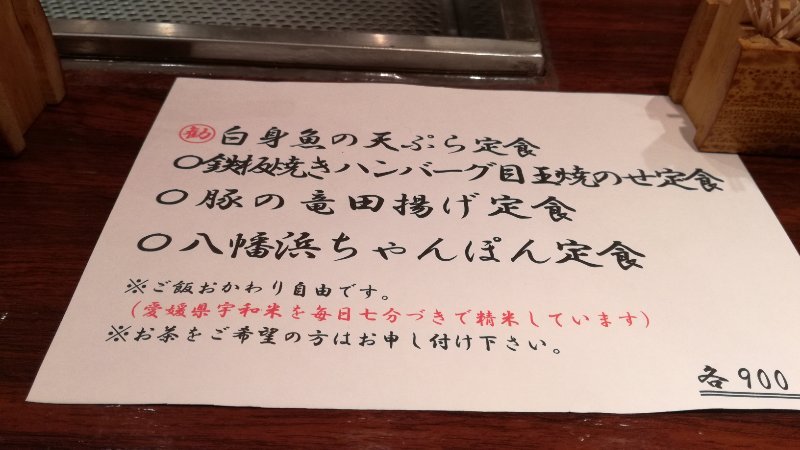 勧 白身魚の天ぷら定食
○鉄板焼きハンバーグ目玉焼のせ定食
○豚の竜田揚げ定食
○八幡浜ちゃんぽん定食
※ご飯おかわり自由です。
(愛媛県宇和米を毎日七分づきで精米しています)
※お茶をご希望の方はお申し付け下さい。
各900